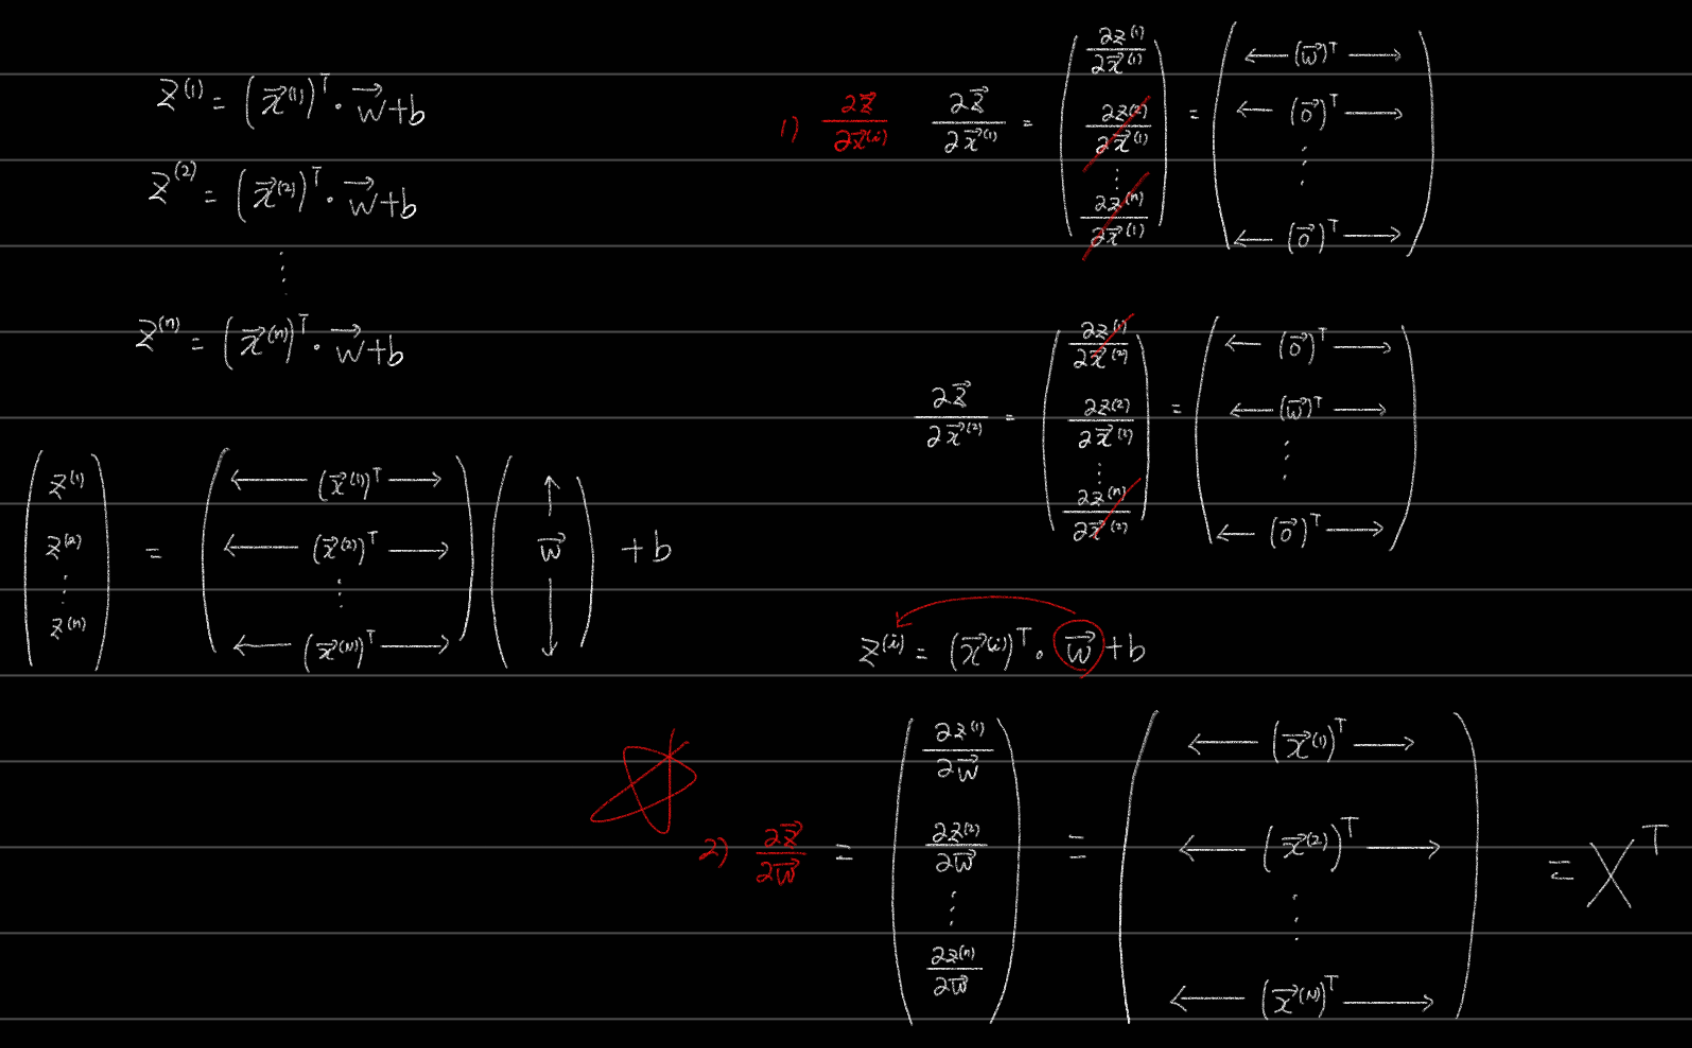 z^{(1)} = (\vec{x}^{(1)})^T · \vec{w} + b
z^{(2)} = (\vec{x}^{(2)})^T · \vec{w} + b
⋮
z^{(n)} = (\vec{x}^{(n)})^T · \vec{w} + b
\begin{pmatrix} z^{(1)} \\ z^{(2)} \\ ⋮ \\ z^{(n)} \end{pmatrix} = \begin{pmatrix} ← (\vec{x}^{(1)})^T → \\ ← (\vec{x}^{(2)})^T → \\ ⋮ \\ ← (\vec{x}^{(N)})^T → \end{pmatrix} \begin{pmatrix} ↑ \\ \vec{w} \\ ↓ \end{pmatrix} + b
1) \frac{∂\vec{z}}{∂\vec{x}^{(i)}} \frac{∂\vec{z}}{∂\vec{x}^{(1)}} = \begin{pmatrix} \frac{∂z^{(1)}}{∂\vec{x}^{(1)}} \\ \frac{∂z^{(2)}}{∂\vec{x}^{(1)}} \\ ⋮ \\ \frac{∂z^{(n)}}{∂\vec{x}^{(1)}} \end{pmatrix} = \begin{pmatrix} ← (\vec{w})^T → \\ ← (\vec{0})^T → \\ ⋮ \\ ← (\vec{0})^T → \end{pmatrix}
\frac{∂\vec{z}}{∂\vec{x}^{(2)}} = \begin{pmatrix} \frac{∂z^{(1)}}{∂\vec{x}^{(2)}} \\ \frac{∂z^{(2)}}{∂\vec{x}^{(2)}} \\ ⋮ \\ \frac{∂z^{(n)}}{∂\vec{x}^{(2)}} \end{pmatrix} = \begin{pmatrix} ← (\vec{0})^T → \\ ← (\vec{w})^T → \\ ⋮ \\ ← (\vec{0})^T → \end{pmatrix}
z^{(i)} = (\vec{x}^{(i)})^T · \vec{w} + b
2) \frac{∂\vec{z}}{∂\vec{w}} = \begin{pmatrix} \frac{∂z^{(1)}}{∂\vec{w}} \\ \frac{∂z^{(2)}}{∂\vec{w}} \\ ⋮ \\ \frac{∂z^{(n)}}{∂\vec{w}} \end{pmatrix} = \begin{pmatrix} ← (\vec{x}^{(1)})^T → \\ ← (\vec{x}^{(2)})^T → \\ ⋮ \\ ← (\vec{x}^{(N)})^T → \end{pmatrix} = X^T